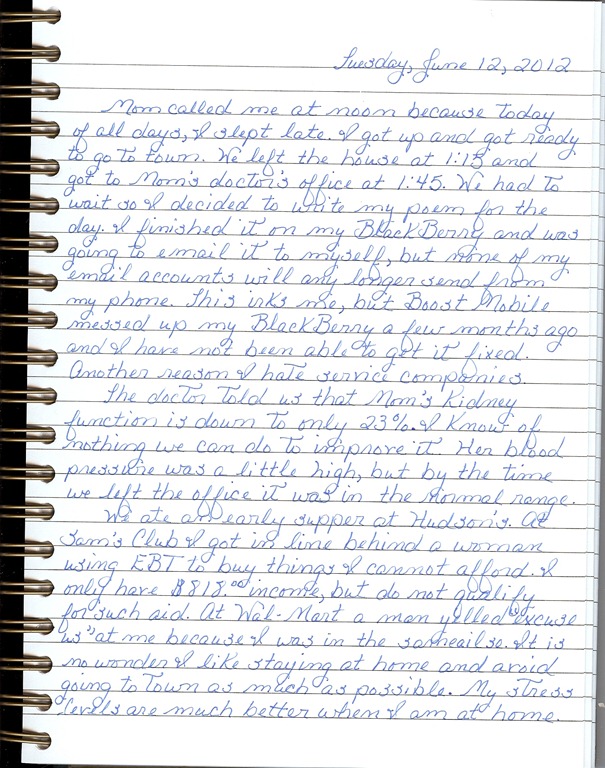 Tuesday, June 12, 2012
Mom called me at noon because today
of all days, I slept late. I got up and got ready
to go to town. We left the house at 1:15 and
got to Mom's doctor's office at 1:45. We had to
wait so I decided to write my poem for the
day. I finished it on my BlackBerry and was
going to email it to myself, but none of my
email accounts will any longer send from
my phone. This irks me, but Boost Mobile
messed up my BlackBerry a few months ago
and I have not been able to get it fixed.
Another reason I hate service companies.
The doctor told us that Mom's Kidney
function is down to only 23%. I know of
nothing we can do to improve it. Her blood
pressure was a little high, but by the time
we left the office it was in the normal range.
We ate an early supper at Hudson's. At
Sam's Club I got in line behind a woman
using EBT to buy things I cannot afford. I
only have $818.00 income, but do not qualify
for such aid. At Wal-Mart a man yelled "excuse
us" at me because I was in the same aisle. It is
no wonder I like staying at home and avoid
going to town as much as possible. My stress
levels are much better when I am at home.